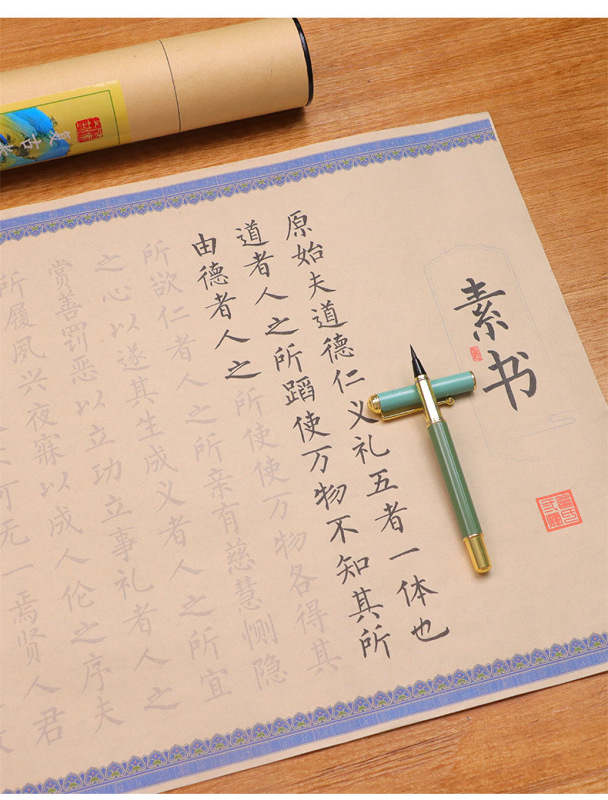 素书
原始夫道德仁义礼五者一体也
道者人之所蹈使万物不知其所
由德者人之所使使万物各得其
所欲仁者人之所亲有慈慧恻隐
之心以遂其生成义者人之所宜
赏善罚恶以立功立事礼者人之
所履夙兴夜寐以成人伦之序夫
可无一焉贤人君
复古